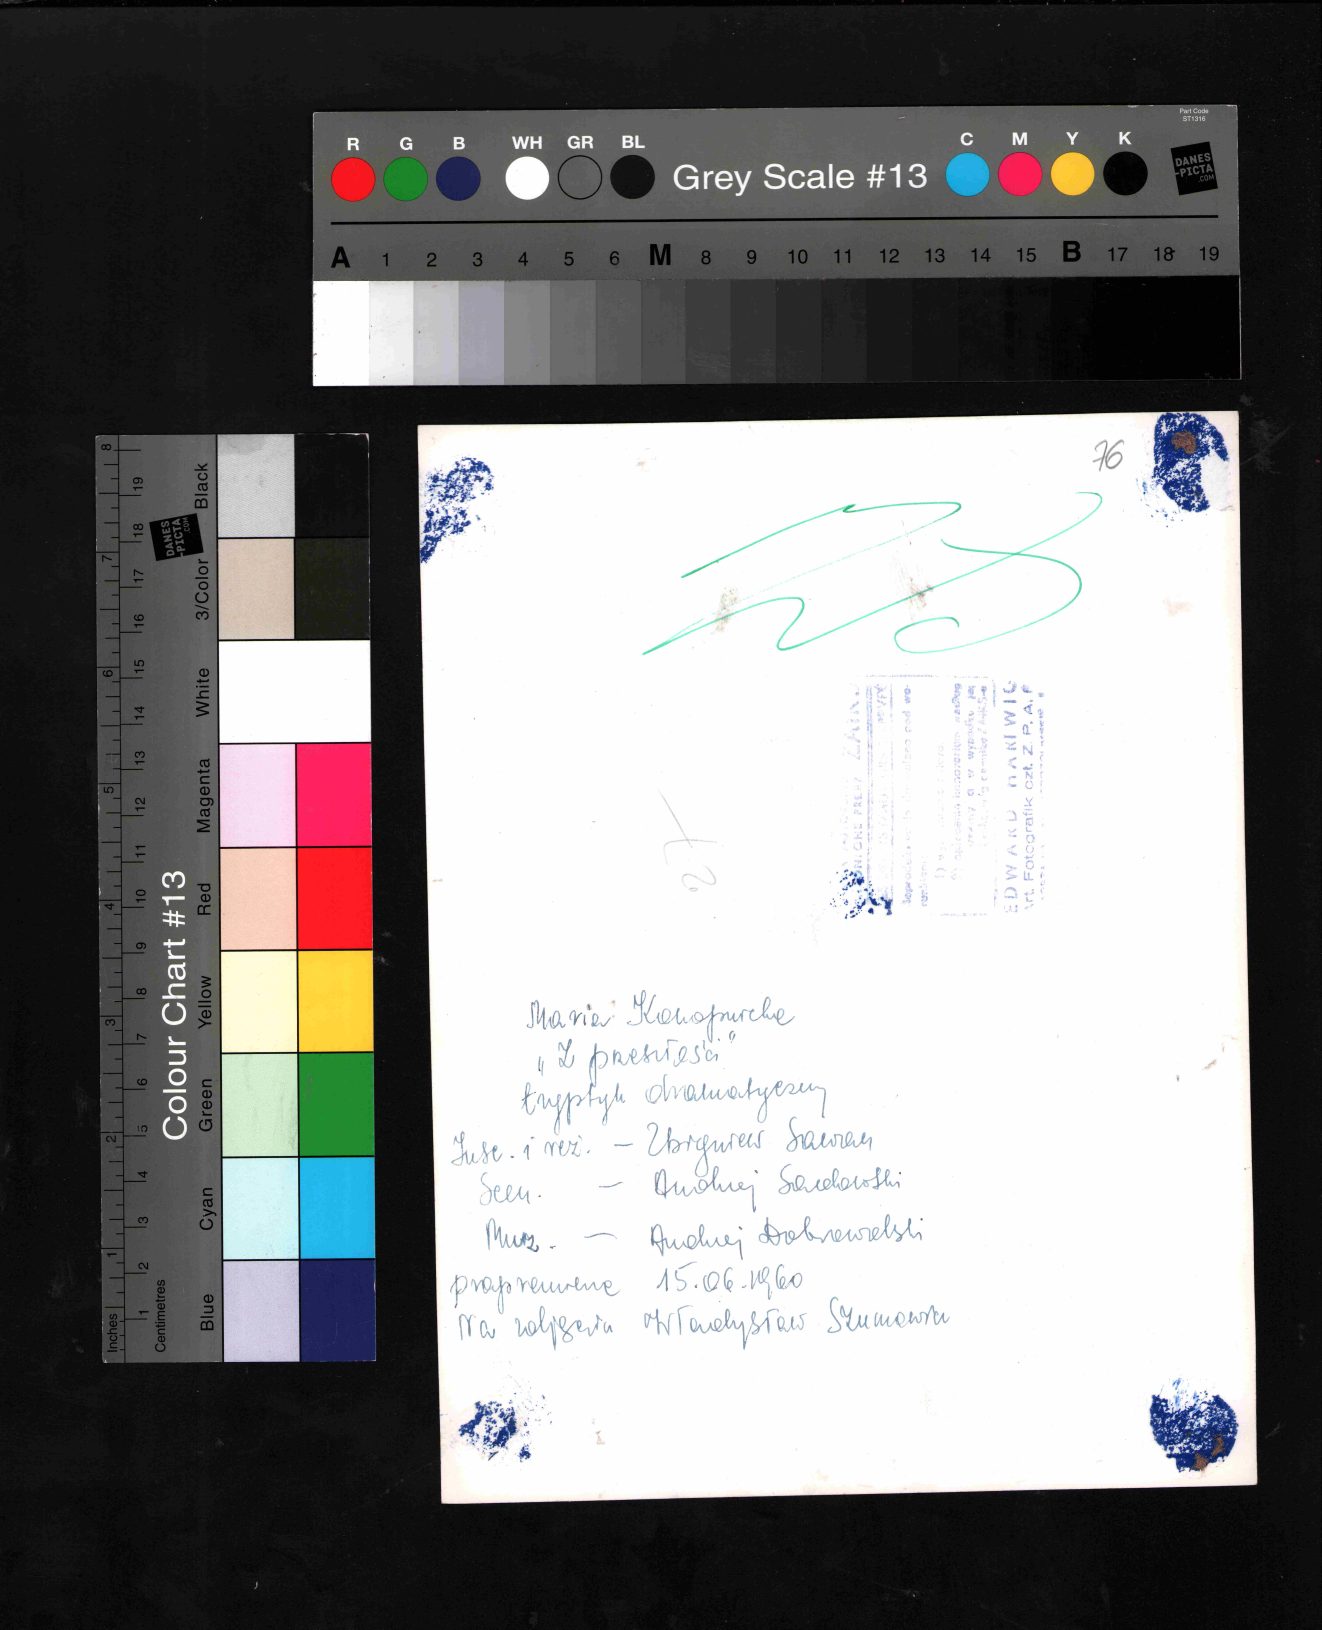 Part Code
ST1316
R G B WH GR BL Grey Scale #13 C M Y K
DANES
-PICTA
.COM
A 1 2 3 4 5 6 M 8 9 10 11 12 13 14 15 B 17 18 19
Colour Chart #13
Black
3/Color
White
Magenta
Red
Yellow
Green
Cyan
Blue
DANES
-PICTA
.COM
8 7 6 5 4 3 2 1 Inches
19 18 17 16 15 14 13 12 11 10 9 8 7 6 5 4 3 2 1 Centimetres
76
27
EDWARD HARTWIG
Art. Fotografik czł. Z.P.A.F
Maria Konopnicka
"Z przeszłości"
tryptyk dramatyczny
Insc. i reż. - Zbigniew Sawan
Scen. - Andrzej Sadowski
Muz. - Andrzej Dobrowolski
prapremiera 15.06.1960
Na zdjęciu Władysław Szumowicz